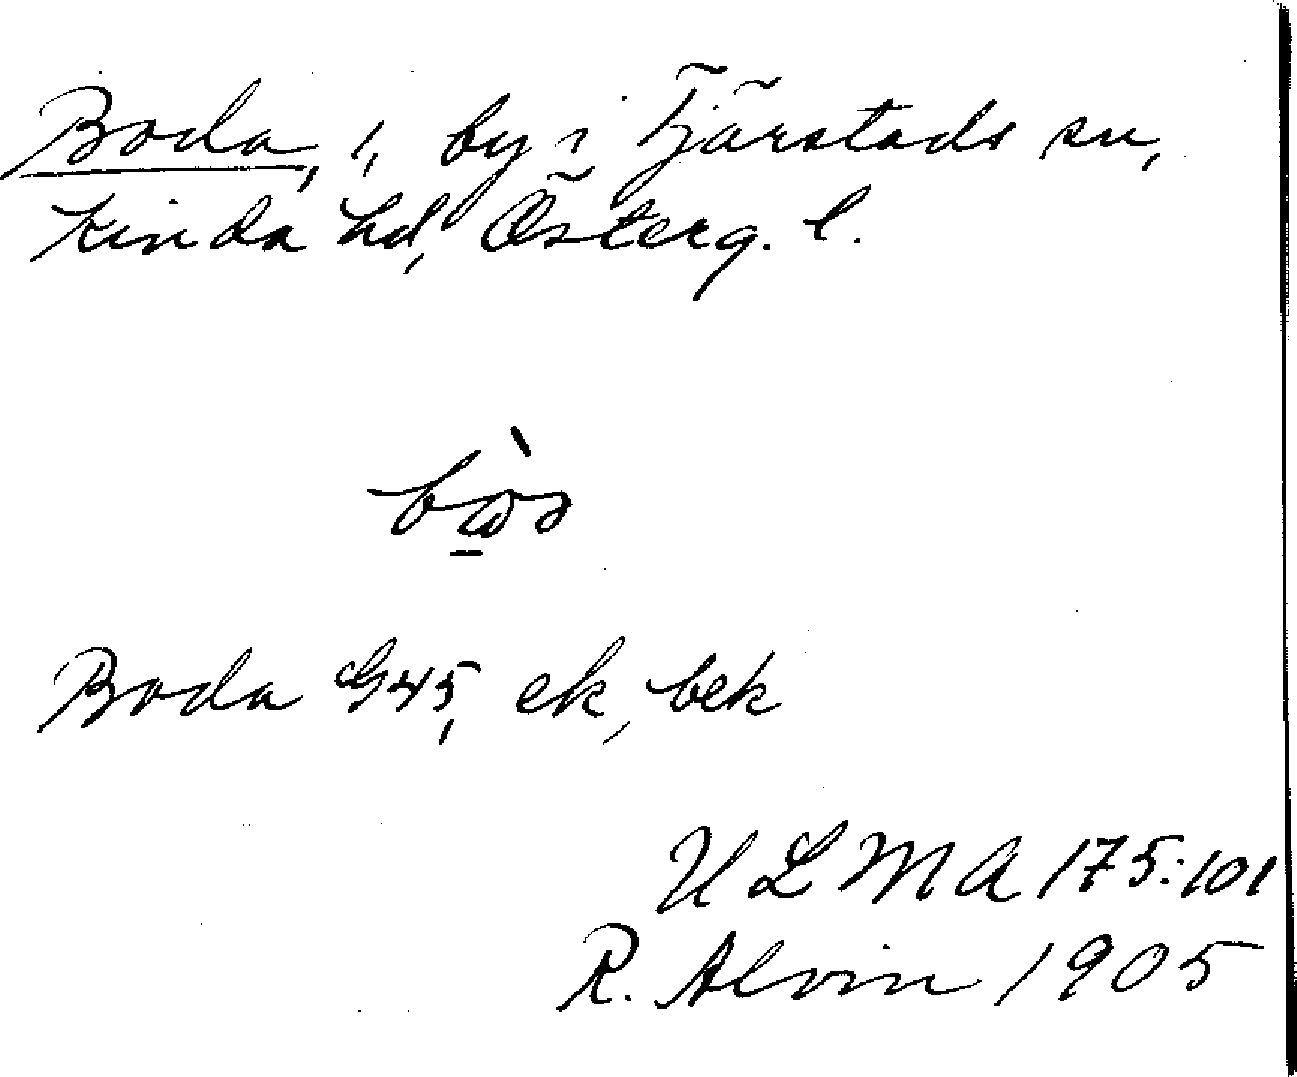 Boda, 1, by i Tjärstads sn,
Kinda hd, Österg. l.
Boda G45, ek, bek
ULMA 175:101
R. Alvin 1905